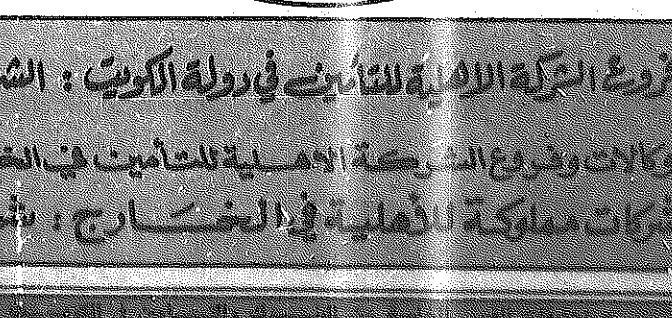 فروع الشركة الأهلية للتأمين في دولة الكويت :
وكالات وفروع الشركة الاهلية للتأمين في
شركات مملوكة للأهلية في الخارج :